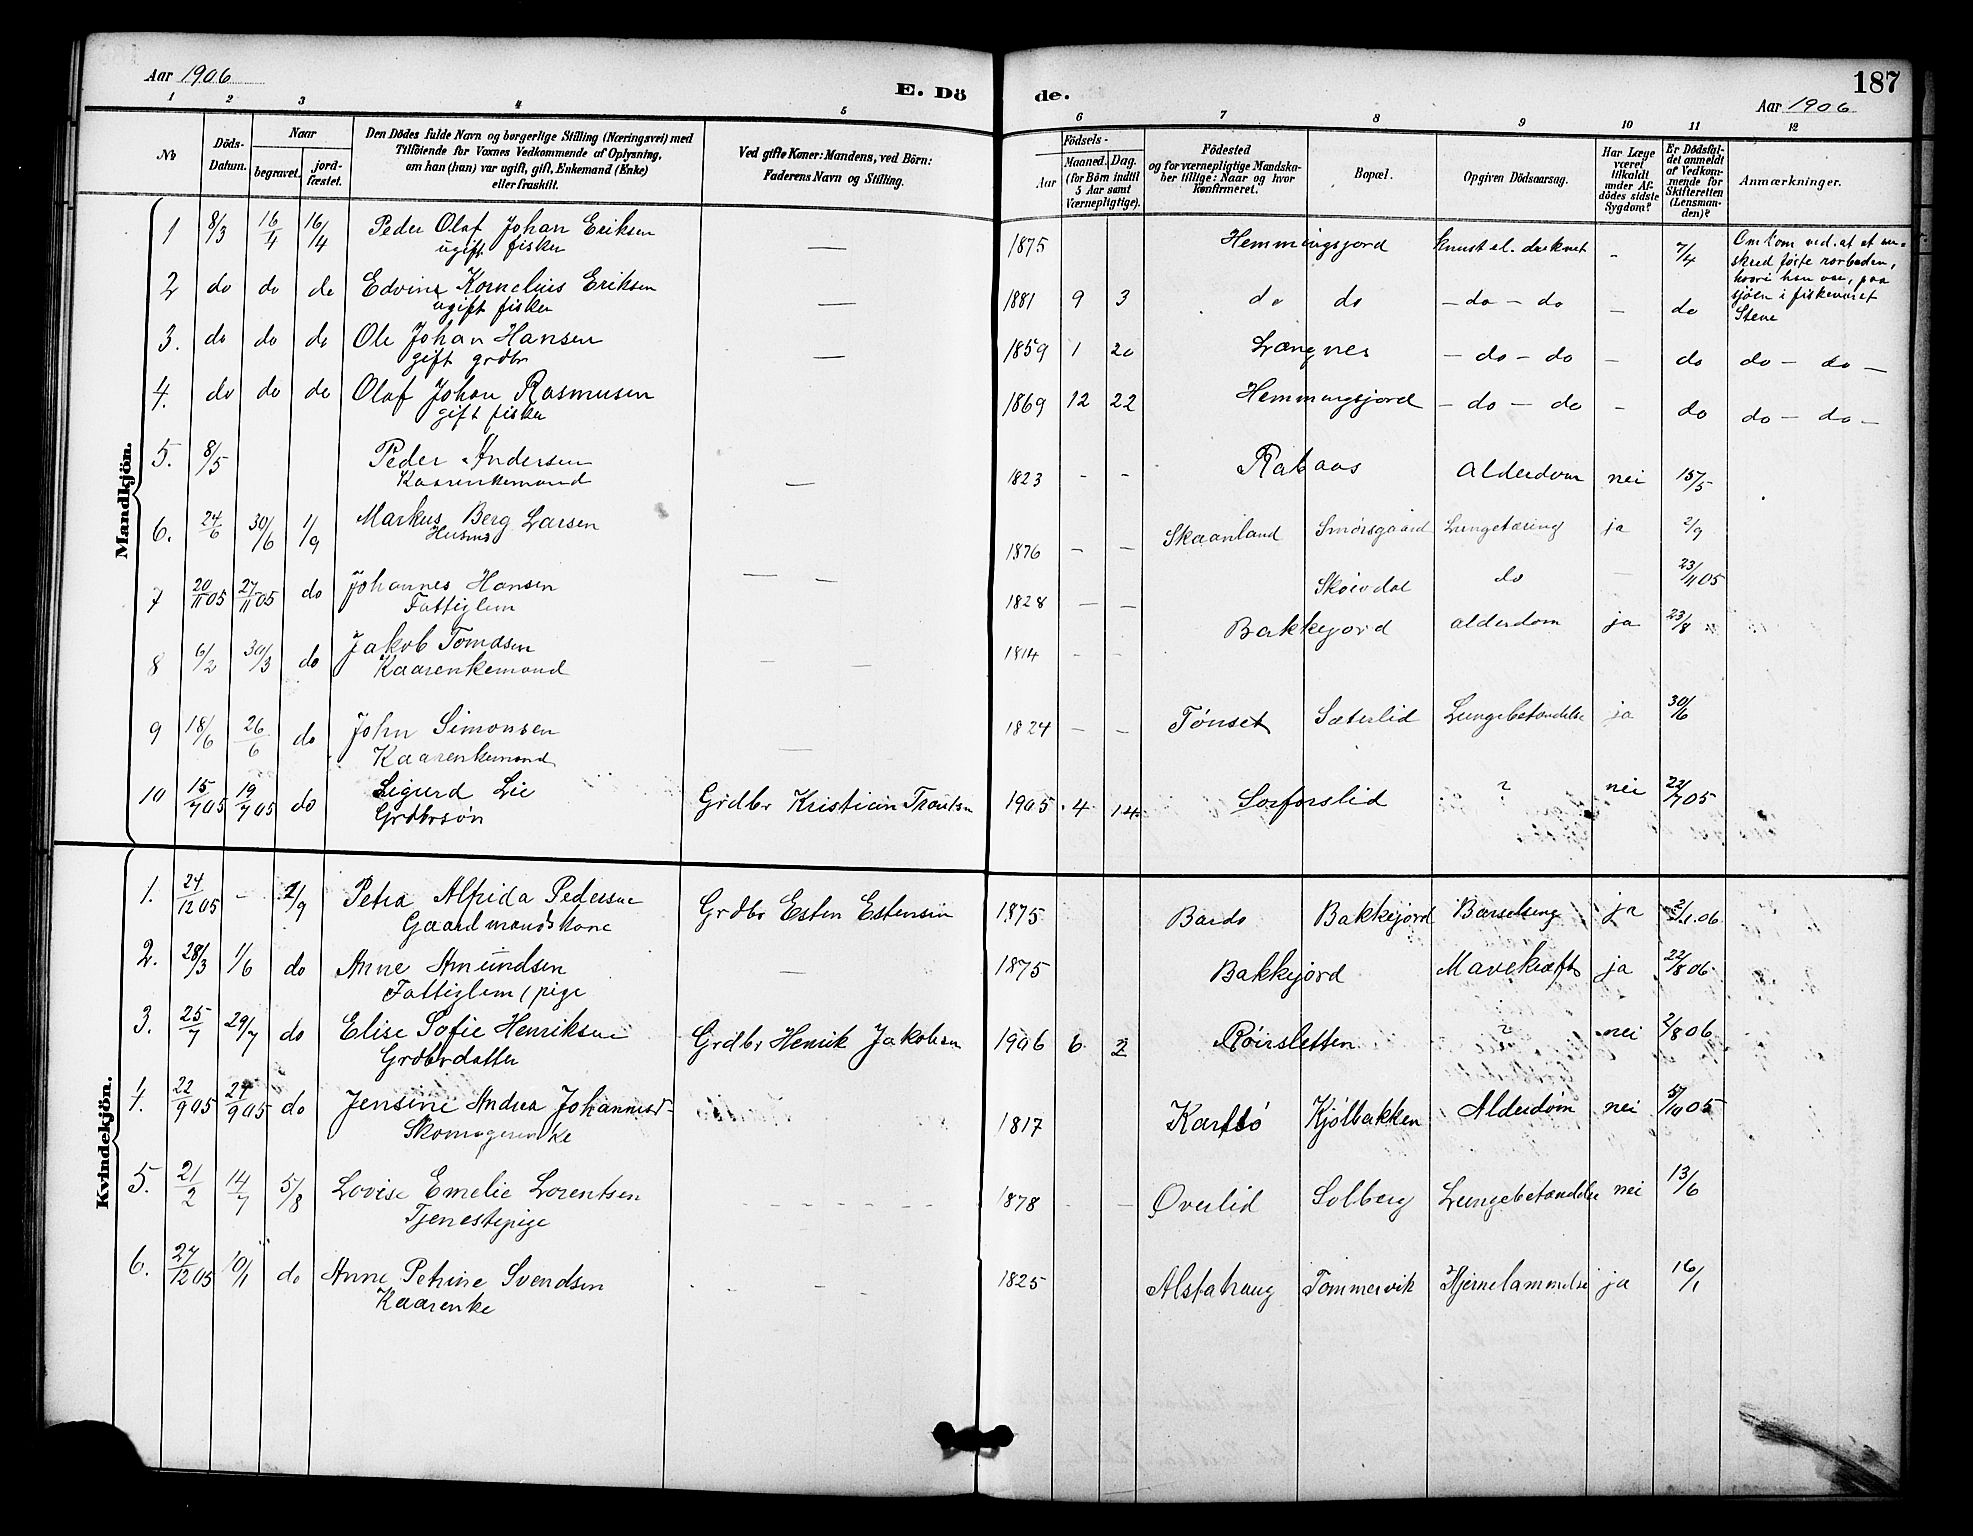 Aar 1906
E. Dö de.
187
Aar 1906
1 2 3 4 5 6 7 8 9 10 11 12
No
Döds-Datum.
Naar
begravet.
jord-fæstet.
Den Dödes fulde Navn og borgerlige Stilling (Næringsvei) med
Tilföiende for Voxnes Vedkommende af Oplysning,
om han (hun) var ugift, gift, Enkemand (Enke)
eller fraskilt.
Ved gifte Koner: Mandens, ved Börn:
Faderens Navn og Stilling.
Födsels-
Aar
Maaned. Dag.
(for Börn indtil
5 Aar samt
Værnepligtige).
Födested
og for værnepligtige Mandska-
ber tillige: Naar og hvor
Konfirmeret.
Bopæl.
Opgiven Dödsaarsag.
Har Læge
været
tilkaldt
under Af-
dödes sidste
Sygdom?
Er Dödsfal-
det anmeldt
af Vedkom-
mende for
Skifteretten
(Lensman-
den)?
Anmærkninger.
Mandkjön.
1 8/3 16/4 16/4 Peder Olaf Johan Eriksen — 1875 Hemmingsjord knust el. druknet - 7/4 Omkom ved at et sne-
ugift fisker
skred förte rorboden,
hvori han var, paa
sjöen i fiskeværet
2 do do do Edvin Kornelius Eriksen — 1881 9 3 do do — do — do — do Stene
ugift fisker
3. do do do Ole Johan Hansen — 1859 1 20 Længnes — do — do — do do — do —
gift grdbr
4. do do do Olaf Johan Rasmusen 1869 12 22 Hemmingsjord — do — do - do do — do —
gift fisker
5. 8/5 Peder Andersen — 1823 - - Rabaas Alderdom nei 15/5
Kaarenkemand
6. 24/6 30/6 1/9 Markus Berg Larsen 1876 — — Skaanland Smörsgaard Lungetæring ja 2/9
Husms
7 20/11 05 27/11 05 do Johannes Hansen — — 1828 — — Skövdal do — 23/11 05
Fattiglem
8 6/2 30/3 do Jakob Tomdsen — — 1814 - - Bakkejord alderdom ja 23/8
Kaarenkemand
9 18/6 26/6 do John Simonsen — 1824 — — Tönset Sæterlid Lungebetændelse ja 30/6
Kaarenkemand
10 15/7 05 19/7 05 do Sigurd Lie Grdbr Kristian Trondsen 1905 4 14 Sorforslid ? nei 22/7 05
Grdbrsön
Kvindekjön.
1. 24/12 05 - 2/9 Petra Alfrida Pedersen Grdbr Esten Estensen 1875 Bardo Bakkejord Barselseng ja 2/1 06
Gaardmandskone
2. 28/3 1/6 do Anne Amundsen — 1875 Bakkejord Mavekræft ja 22/8 06
Fattiglem, pige
3. 25/7 29/7 do Elise Sofie Henriksen Grdbr Henrik Jakobsen 1906 6 2 Röirsletten ? nei 2/8 06
Grdbrdatter
4. 22/9 05 27/9 05 do Jensine Andrea Johannesd- 1817 Karlsö Kjölbakken Alderdom nei 5/10 05
Skomagerenke
5. 21/2 14/7 5/8 Lovise Emelie Lorentsen - - - - - - 1878 - — Överlid Solberg Lungebetændelse nei 13/6
Tjenestepige
6. 27/12 05 10/1 do Anne Petrine Svendsen - - - 1825 Alstahaug Tommervik Hjernelammelse ja 16/1
Kaarenke